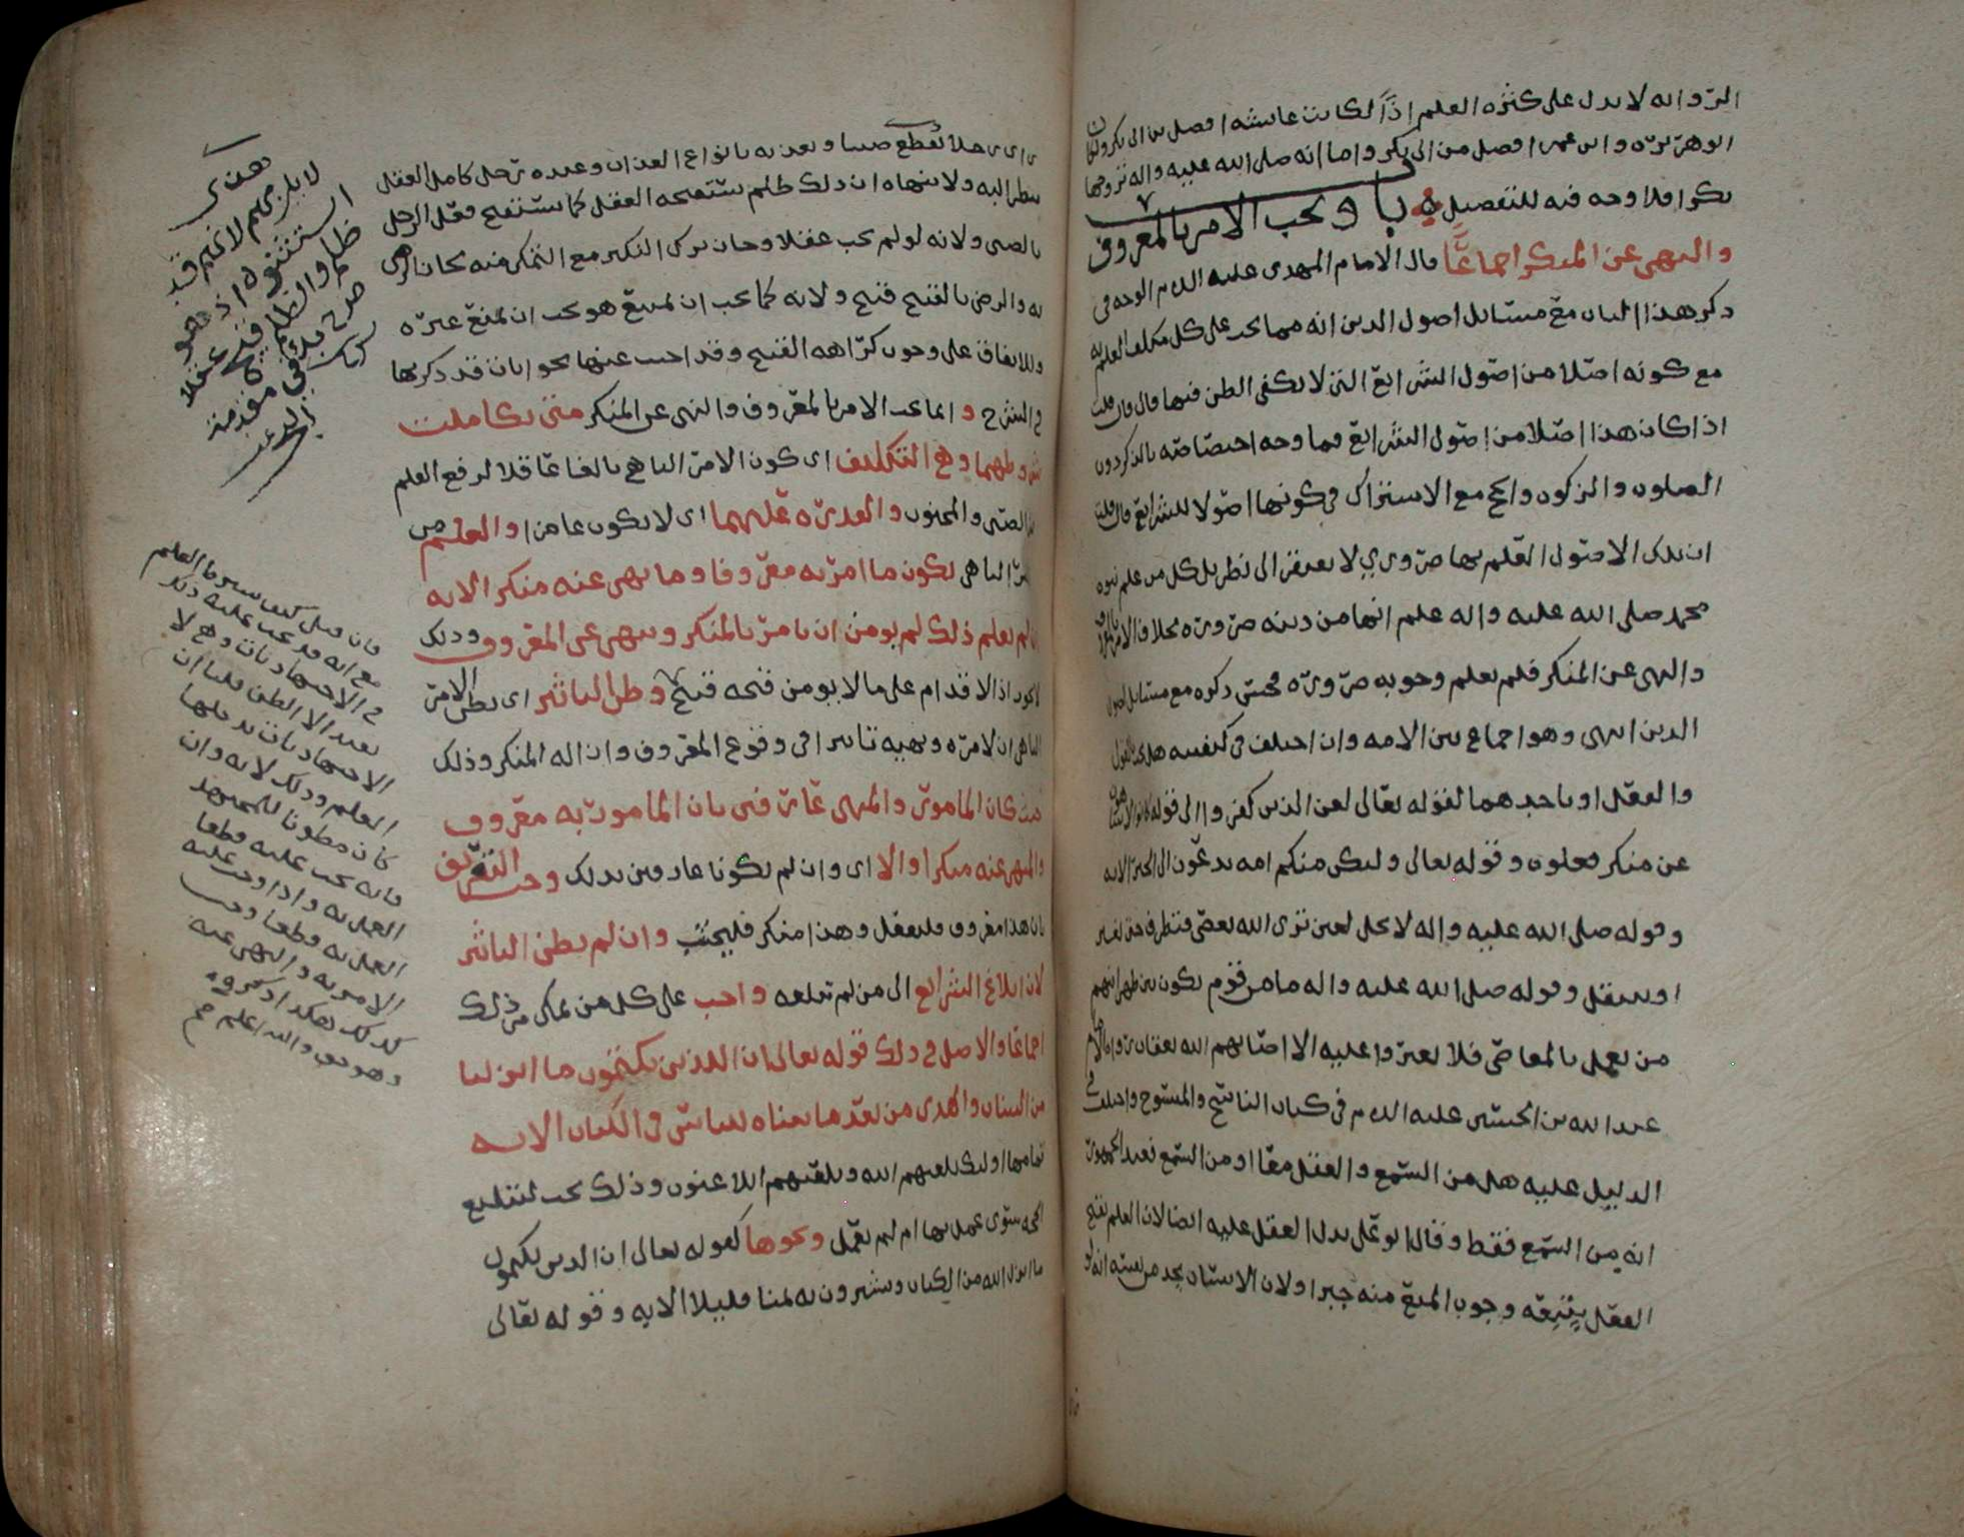 الرواه لا يدل على كثره العلم اذًا لكانت عائشه افضل من ابي بكر ولكان
ابو هريره وابن عمر افضل من ابي بكر واما انه صلى الله عليه واله تزوجها
بكرا فلا وجه فيه للتفضيل باب ويجب الامر بالمعروف
والنهي عن المنكر اجماعًا قال الامام المهدي عليه السلام الوجه في
ذكر هذا الباب مع مسائل اصول الدين انه مما يجب على كل مكلف العلم به
مع كونه اصلا من اصول الشرائع التي لا يكفي الظن فيها قال فان قلت
اذا كان هذا اصلا من اصول الشرائع فما وجه اختصاصه بالذكر دون
الصلوه والزكوه والحج مع الاشتراك في كونها اصولا للشرائع قال قلت
ان تلك الاصول العلم بها ضروري لا يفتقر الى نظر بل كل من علم نبوه
محمد صلى الله عليه واله علم انها من دينه ضروره بخلاف الامر بالمعروف
والنهي عن المنكر فلم يعلم وجوبه ضروره فحسن ذكره مع مسائل اصول
الدين انتهى وهو اجماع بين الامه وان اختلف في كيفيته هل يجب بالقول
والفعل او باحدهما لقوله تعالى لعن الذين كفروا الى قوله كانوا لا يتناهون
عن منكر فعلوه وقوله تعالى ولتكن منكم امه يدعون الى الخير الايه
وقوله صلى الله عليه واله لا يحل لعين ترى الله يعصى فتطرف حتى تغير
او تنتقل وقوله صلى الله عليه واله ما من قوم يكون بين ظهرانيهم
من يعمل بالمعاصي فلا يغيروا عليه الا اصابهم الله بعقاب رواه الامام
عبد الله بن الحسين عليه السلام في كتاب الناسخ والمنسوخ واختلف في
الدليل عليه هل من السمع والعقل معًا او من السمع فعند الجمهور
انه من السمع فقط وقال ابو علي يدل العقل عليه ايضا لان العلم بقبح
الفعل يتبعه وجوب المنع منه جبرا ولان الانسان يجد من نفسه انه لو
راى رجلا يقطع صبيا ويعذبه بانواع العذاب وعنده رجل كامل العقل
ينظر اليه ولا ينهاه ان ذلك ظلم يستقبحه العقل كما يستقبح فعل الرجل
بالصبي ولانه لو لم يجب عقلا وجاز ترك النكير مع التمكن منه لكان الرضى
به والرضى بالقبيح قبيح ولانه كما يجب ان يمتنع هو يجب ان يمنع غيره
وللاتفاق على وجوب كراهه القبيح وقد اجيب عنها بجوابات قد ذكرتها
في الشرح وانما يجب الامر بالمعروف والنهي عن المنكر متى تكاملت
شروطهما وهي التكليف اي كون الامر الناهي بالغا عاقلا لرفع القلم
عن الصبي والمجنون والقدره عليهما اي لا يكون عاجزا والعلم من
الامر الناهي بكون ما امر به معروفا وما نهى عنه منكرا لانه
ان لم يعلم ذلك لم يؤمن ان يامر بالمنكر وينهى عن المعروف وذلك
لا يجوز اذ الاقدام على ما لا يؤمن قبحه قبيح وظن التاثير اي يظن الامر
الناهي ان لامره ونهيه تاثيرا في وقوع المعروف وازاله المنكر وذلك
حيث كان المامور والمنهي عارفين بان المامور به معروف
والمنهي عنه منكرا والا اي وان لم يكونا عارفين بذلك وجب التعريف
بان هذا معروف فليفعل وهذا منكر فليجتنب وان لم يظن التاثير
لان ابلاغ الشرائع الى من لم تبلغه واجب على كل من تمكن من ذلك
اجماعًا والاصل في ذلك قوله تعالى ان الذين يكتمون ما انزلنا
من البينات والهدى من بعد ما بيناه للناس في الكتاب الايه
تمامها اولئك يلعنهم الله ويلعنهم اللاعنون وذلك يجب لتبليغ
الحجه سوى عمل بها ام لم يعمل ونحوها كقوله تعالى ان الذين يكتمون
ما انزل الله من الكتاب ويشترون به ثمنا قليلا الايه وقوله تعالى
لا يلزمهم لانهم قد
استثنوه اذ هو
ظلم والظلم قبيح عقلا
فان قيل كيف شرط العلم
مع انه قد يجب عليه ذلك
في الاجتهاديات وهي لا
تفيد الا الظن قلنا ان
الاجتهاديات يدخلها
العلم وذلك لانه وان
كان مظنونا للمجتهد
فانه يجب عليه قطعا
العمل به واذا وجب عليه
العمل به قطعا وجب
الامر به والنهي عنه
كذلك هكذا ذكروه
وهو حق والله اعلم